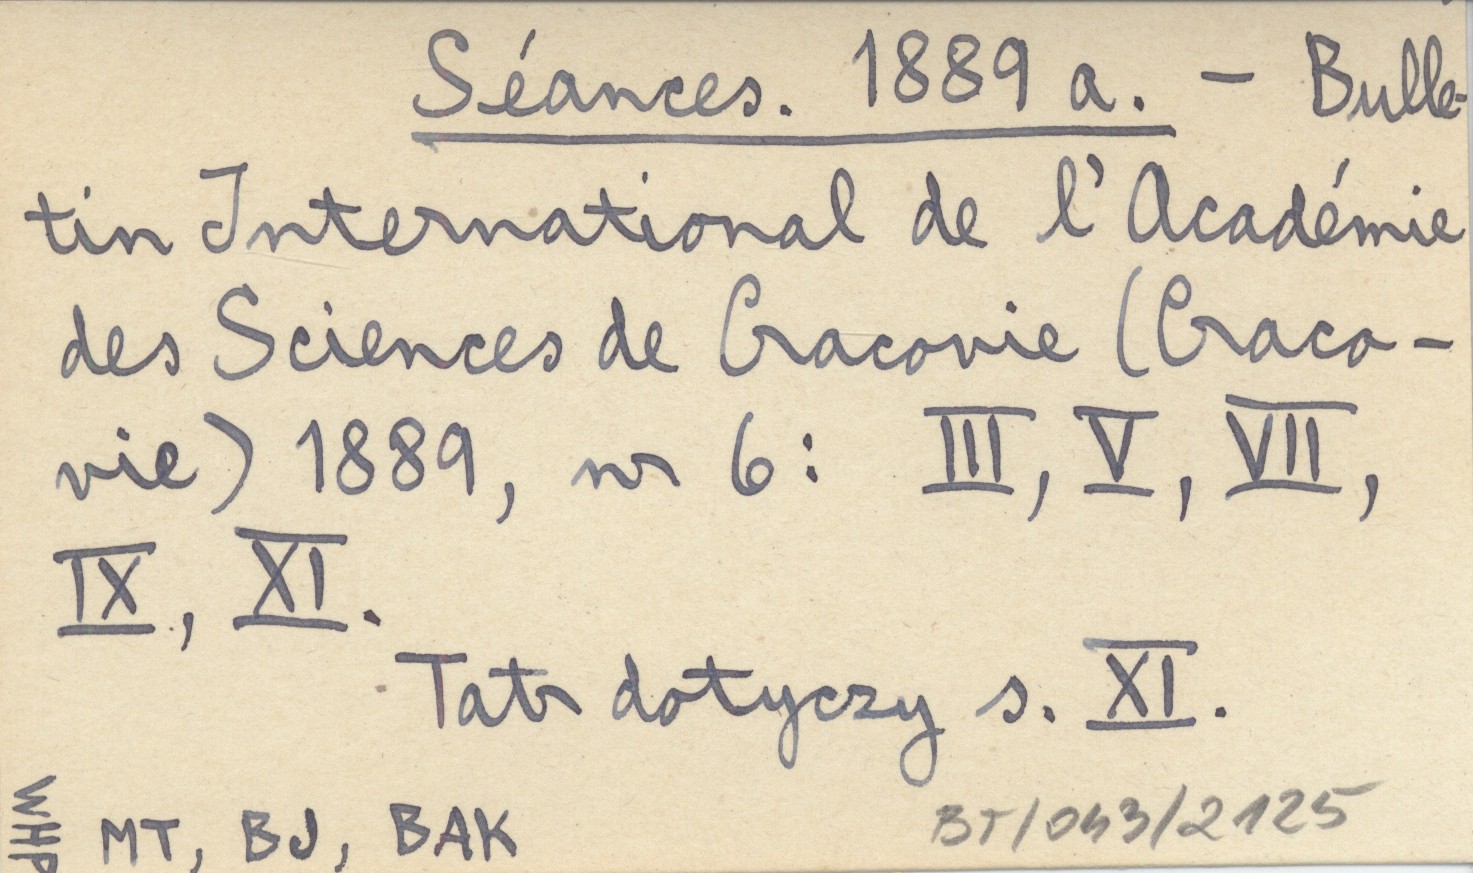 Séances. 1889 a. – Bulle-
tin International de l'Académie
des Sciences de Cracovie (Craco-
vie) 1889, nr 6: III, V, VII,
IX, XI.
Tatr dotyczy s. XI.
WHP
MT, BJ, BAK
BT/043/2125